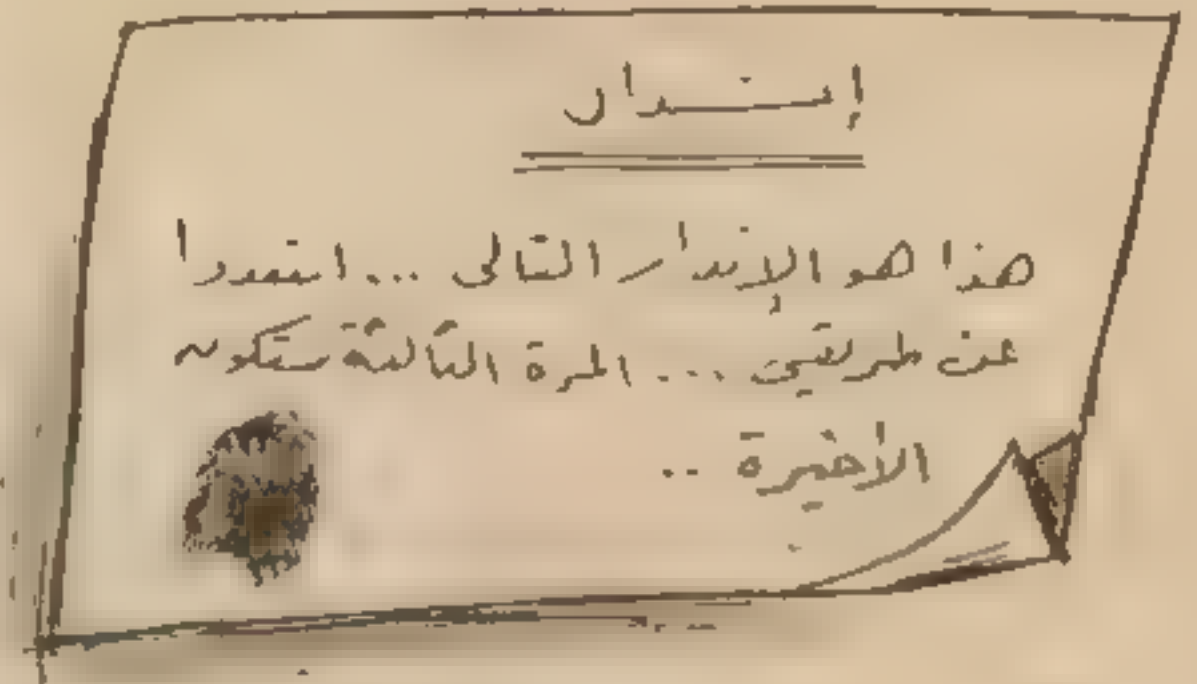 إنــذار
هذا هو الإنذار التالى ... ابتعدوا
عن طريقي ... المرة الثالثة ستكون
الأخيرة ..